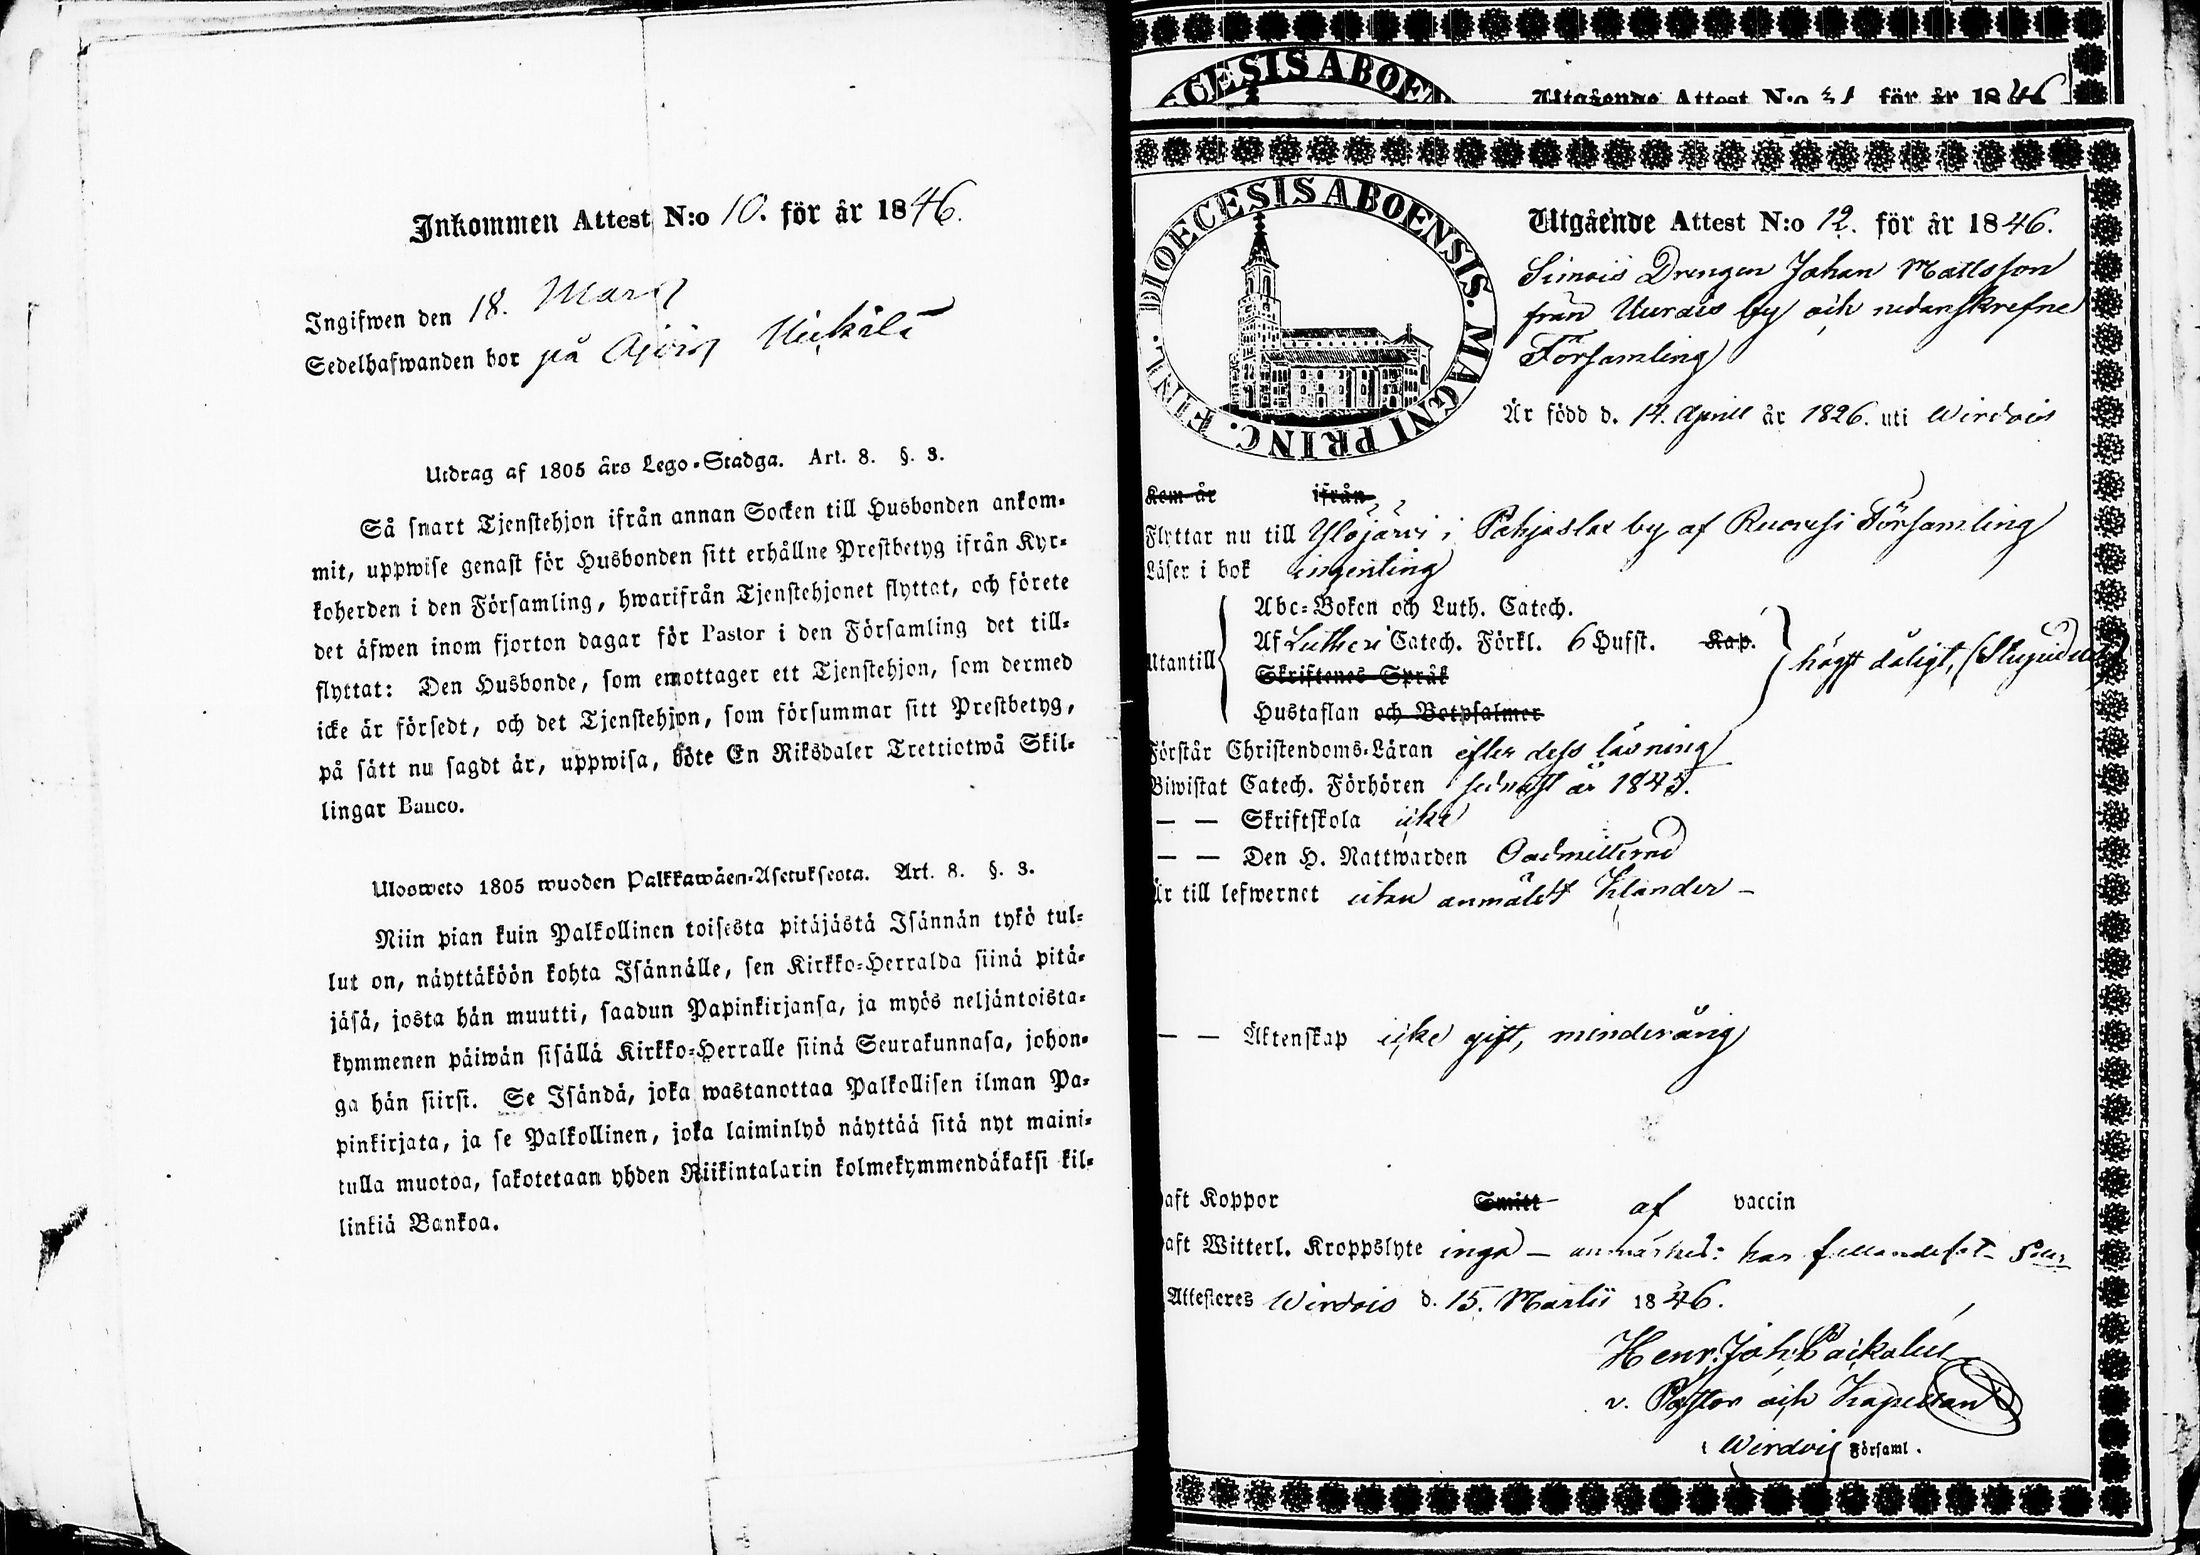 Inkommen Attest N:o 10. för år 1846.
Ingifwen den 18. Mars
Sedelhafwanden bor på
Utdrag af 1805 års Lego-Stadga. Art. 8. §. 3.
Så snart Tjenstehjon ifrån annan Socken till Husbonden ankom-
mit, uppwise genast för Husbonden sitt erhållne Prestbetyg ifrån Kyr-
koherden i den Församling, hwarifrån Tjenstehjonet flyttat, och förete
det äfwen inom fjorton dagar för Pastor i den Församling det till-
flyttat: Den Husbonde, som emottager ett Tjenstehjon, som dermed
icke är försedt, och det Tjenstehjon, som försummar sitt Prestbetyg,
på sätt nu sagdt är, uppwisa, böte En Riksdaler Trettiotwå Skil-
lingar Banco.
Ulosweto 1805 wuoden Palkkawäen-Asetuksesta. Art. 8. §. 3.
Niin pian kuin Palkollinen toisesta pitäjästä Isännän tykö tul-
lut on, näyttäköön kohta Isännälle, sen Kirkko-Herralda siinä pitä-
jäsä, josta hän muutti, saadun Papinkirjansa, ja myös neljäntoista-
kymmenen päiwän sisällä Kirkko-Herralle siinä Seurakunnasa, johon-
ga hän siirsi. Se Isändä, joka wastanottaa Palkollisen ilman Pa-
pinkirjata, ja se Palkollinen, joka laiminlyö näyttää sitä nyt maini-
tulla muotoa, sakotetaan yhden Riikintalarin kolmekymmendäkaksi kil-
linkiä Bankoa.
CESIS ABOE
Utgående Attest N:o 31 för år 1846
DIOECESIS ABOENSIS. MAGNI PRINC. FINL.
Utgående Attest N:o 12. för år 1846.
Drengen Johan Mattsson
från by och nedanskrefne
Församling
Är född d. 14. Aprill år 1826. uti Wirdois
Kom år ifrån
Flyttar nu till Ylöjärvi i by af Ruovesi Församling
Läser i bok ingenting
Utantill
Abc-Boken och Luth. Catech.
Af Lutheri Catech. Förkl. 6 Hufst. Kap.
Skriftenes Språk
Hustaflan och Botpsalmer
högst dåligt,
Förstår Christendoms-Läran efter dess läsning
Biwistat Catech. Förhören sednast år 1845.
— — Skriftskola icke
— — Den H. Nattwarden Oadmitterad
Är till lefwernet utan anmäldt klander -
— — Äktenskap icke gift, minderårig
aft Koppor Smitt af vaccin
aft Witterl. Kroppslyte inga — anmärkes: har fallandesot
Attesteres Wirdois d. 15. Martii 1846.
Henr. Joh.
v. Pastor och Kapellan
i Wirdois Församl.